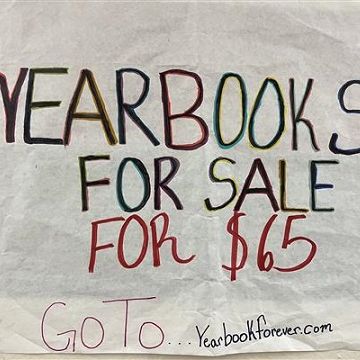 YEARBOOKS
FOR SALE
FOR $65
GO TO... Yearbookforever.com